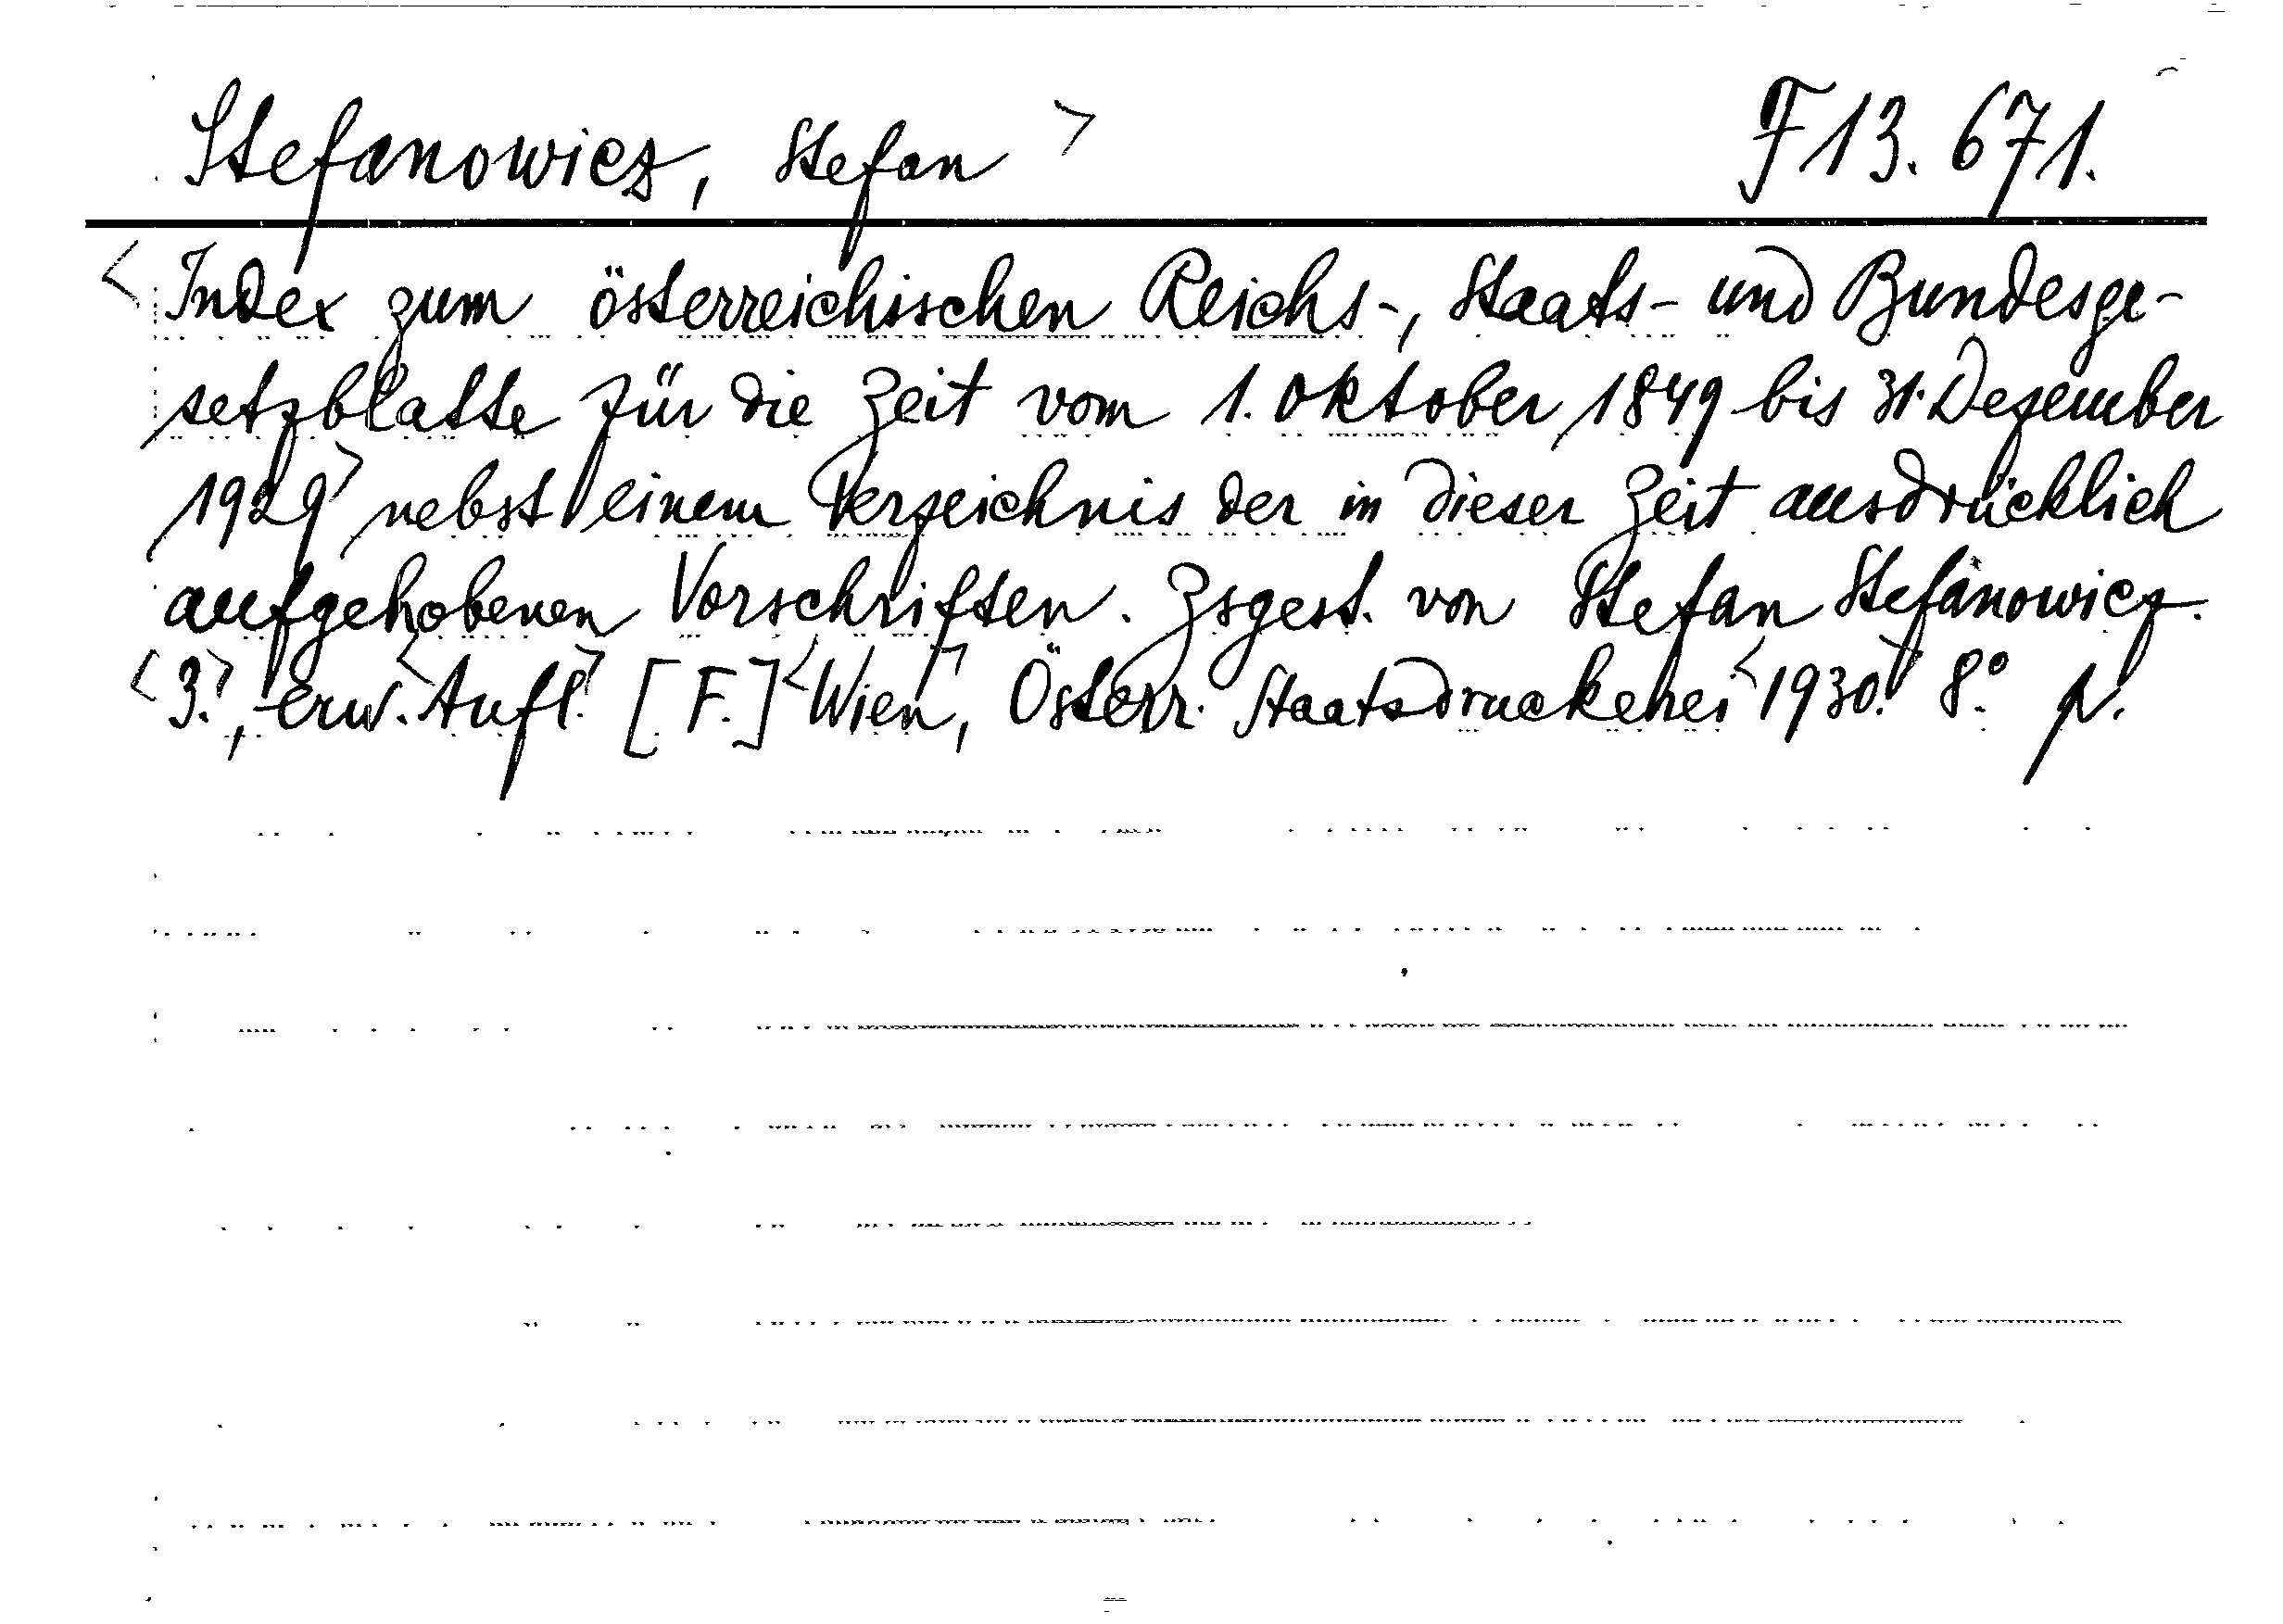 Stefanowicz, Stefan > F 13. 671.
< Index zum österreichischen Reichs-, Staats- und Bundesge-
setzblatte für die Zeit vom 1. Oktober 1849 bis 31. Dezember
1929 > nebst einem Verzeichnis der in dieser Zeit ausdrücklich
aufgehobenen Vorschriften. Zsgest. von Stefan Stefanowicz.
< 3. >, erw. < Aufl. > [F.] < Wien >, Österr. Staatsdruckerei < 1930. > 8°.